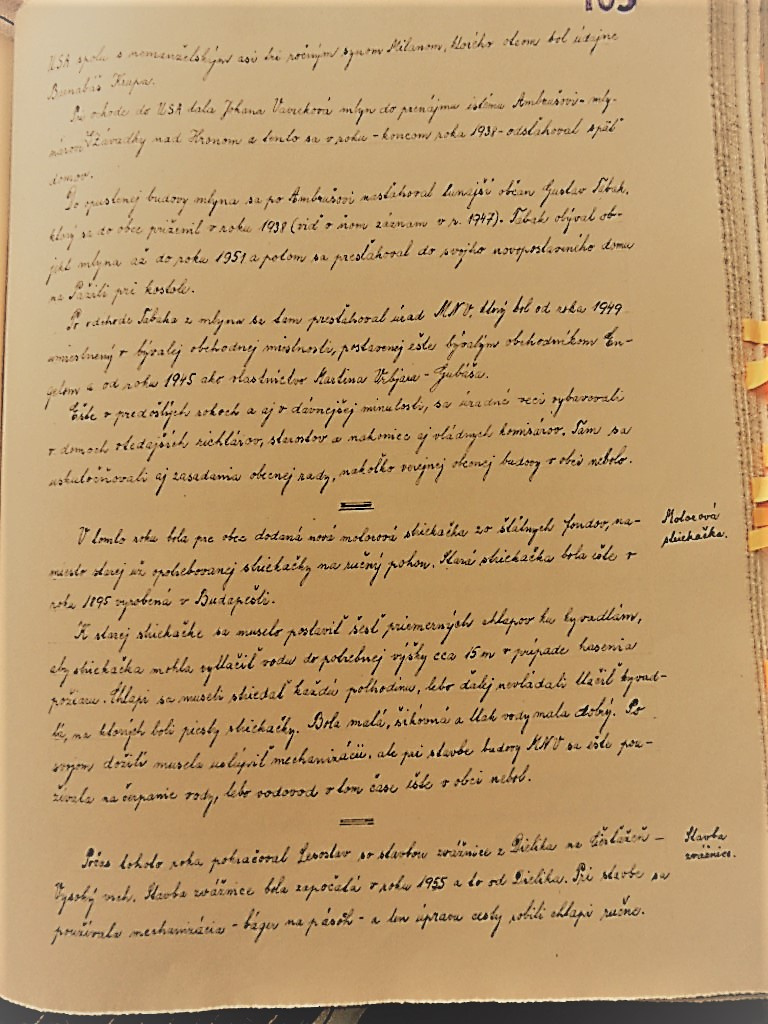 105
USA spolu s nemanželským asi tri ročným synom Milanom, ktorého otcom bol údajne
Barnabáš Krupa.
Po odchode do USA dala Johana Vavreková mlyn do prenájmu istému Ambrušovi - mly-
nárovi z Závadky nad Hronom a tento sa v roku - koncom roka 1938 - odsťahoval späť
domov.
Do opustenej budovy mlyna sa po Ambrušovi nasťahoval tunajší občan Gustav Tabak,
ktorý sa do obce priženil v roku 1938 (viď o ňom záznam v r. 1947). Tabak obýval ob-
jekt mlyna až do roku 1951 a potom sa presťahoval do svojho novopostaveného domu
na Pažiti pri kostole.
Po odchode Tabaka z mlyna sa tam presťahoval úrad MNV, ktorý bol od roku 1949
umiestnený v bývalej obchodnej miestnosti, postavenej ešte bývalým obchodníkom En-
gelom a od roku 1945 ako vlastníctvo Martina Vrbjara - Gubáša.
Ešte v predošlých rokoch a aj v dávnejšej minulosti, sa úradné veci vybavovali
v domoch vtedajších richtárov, starostov a nakoniec aj vládnych komisárov. Tam sa
uskutočňovali aj zasadania obecnej rady, nakoľko verejnej obecnej budovy v obci nebolo.
V tomto roku bola pre obec dodaná nová motorová striekačka zo štátnych fondov, na-
miesto starej už opotrebovanej striekačky na ručný pohon. Stará striekačka bola ešte v
roku 1895 vyrobená v Budapešti.
Motorová
striekačka.
K starej striekačke sa muselo postaviť šesť priemerných chlapov ku kyvadlám,
aby striekačka mohla vytlačiť vodu do potrebnej výšky cca 15 m v prípade hasenia
požiaru. Chlapi sa museli striedať každú polhodinu, lebo ďalej nevládali tlačiť kyvad-
lá, na ktorých boli piesty striekačky. Bola malá, šikovná a tlak vody mala dobrý. Po
svojom dožití musela ustúpiť mechanizácii, ale pri stavbe budovy MNV sa ešte pou-
žívala na čerpanie vody, lebo vodovod v tom čase ešte v obci nebol.
Počas tohoto roka pokračoval Lesostav so stavbou zvážnice z Dielika na Čertťažeň -
Vysoký vrch. Stavba zvážnice bola započatá v roku 1955 a to od Dielika. Pri stavbe sa
používala mechanizácia - báger na pásoch - a len úpravu cesty robili chlapi ručne.
Stavba
zvážnice.